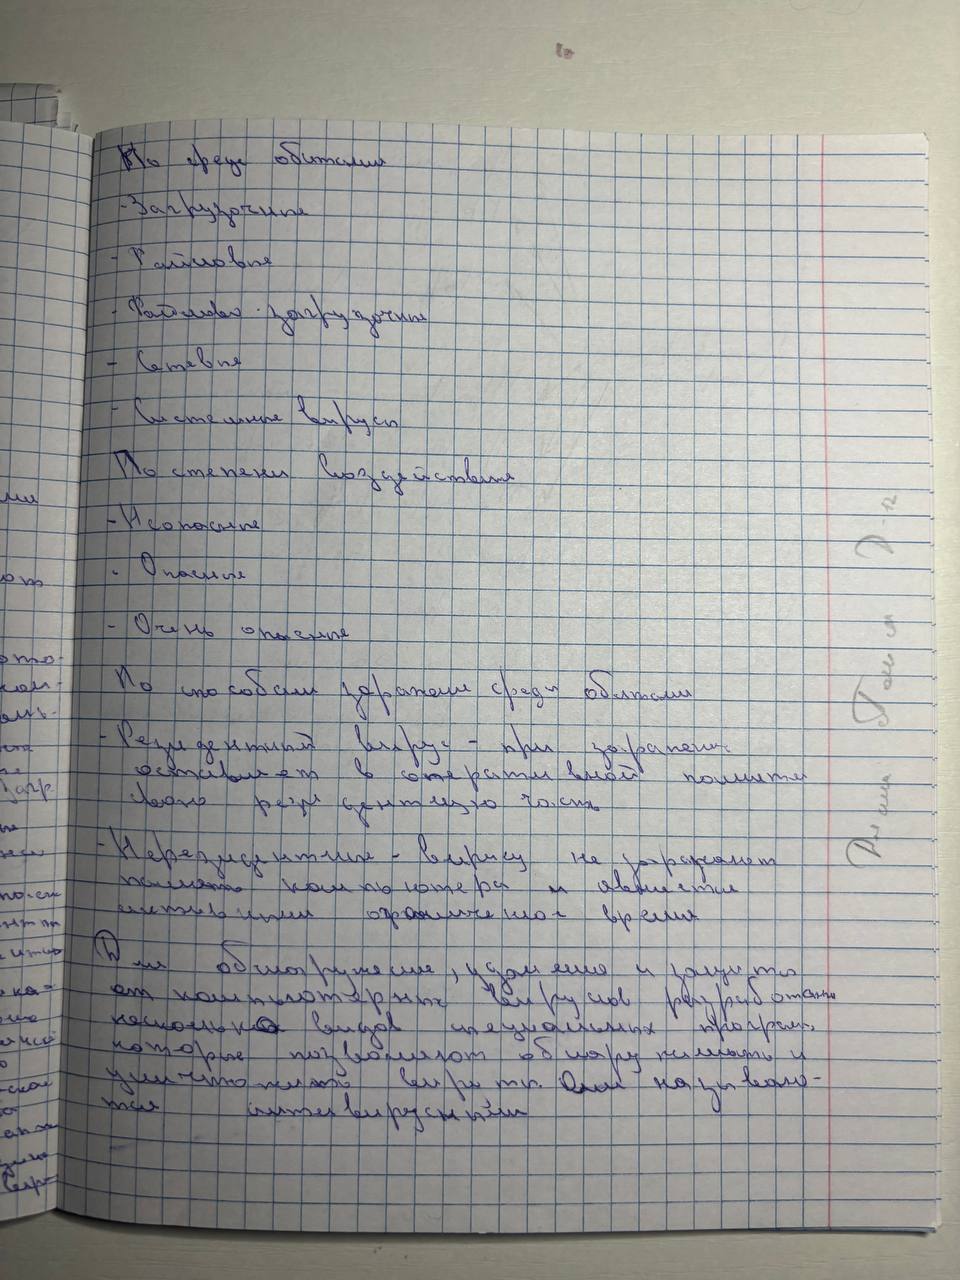 По среде обитания
- Загрузочные
- Файловые
- Файлово-загрузочные
- Сетевые
- Системные вирусы
По степени воздействия
- Неопасные
- Опасные
- Очень опасные
По способам заражения среды обитания
- Резидентный вирус - при заражении
оставляет в оперативной памяти
свою резидентную часть
- Нерезидентные - вирусы не заражают
память компьютера и являются
активными ограниченное время
Для обнаружения, удаления и защиты
от компьютерных вирусов разработаны
несколько видов специальных программ,
которые позволяют обнаруживать и
уничтожать вирусы. Они называют-
ся антивирусными